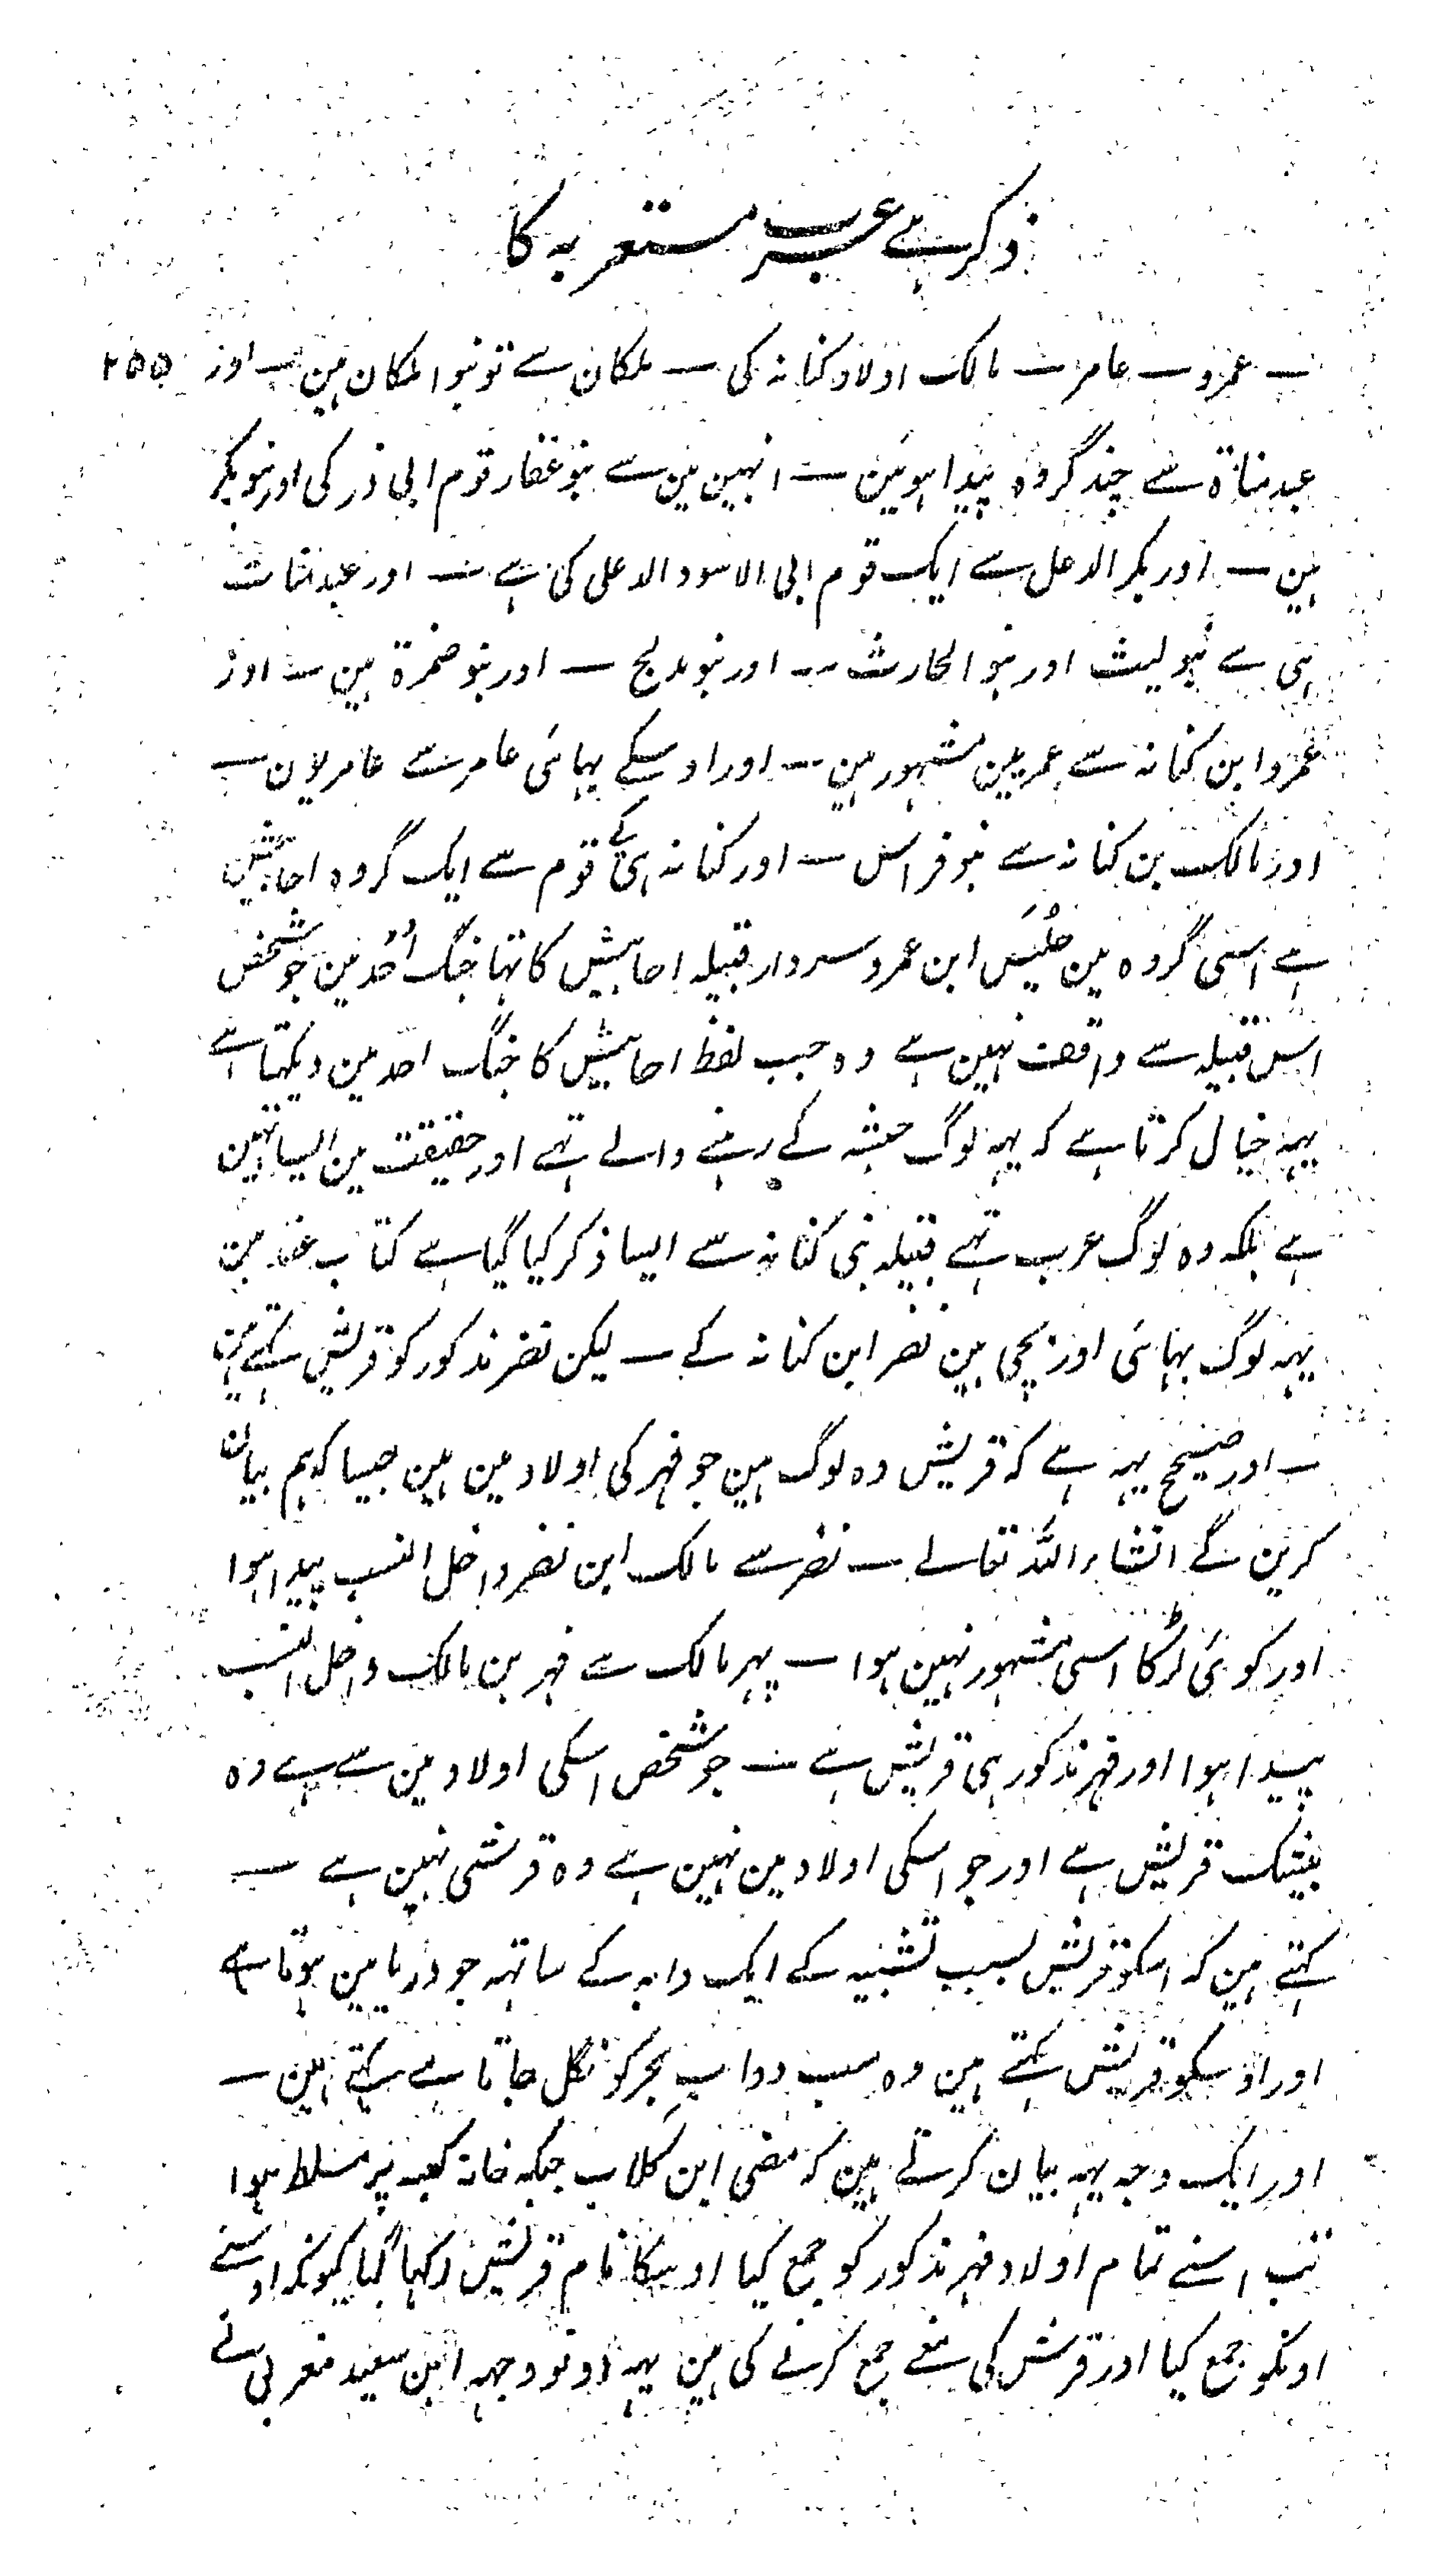 ذکر ہے عرب مستعربہ کا
۲۵۵
ـ عمرو ـ عامر ـ مالک اولاد کنانہ کی ـ ملکان سے تو بنو الملکان ہین ـ اور
عبد مناة سے چند گروہ پیدا ہوئین ـ انہین مین سے بنو غفار قوم ابی ذر کی اور بنو بکر
ہین ـ اور بکر الدعل سے ایک قوم ابی الاسود الدعلی کی ہے ـ اور عبد منات
ہی سے بنو لیث اور بنو الحارث ـ اور بنو مدلج ـ اور بنو ضمرة ہین ـ اور
عمرو ابن کنانہ سے عمریین مشہور ہین ـ اور اوسکے بہائی عامر سے عامریون ـ
اور مالک بن کنانہ سے بنو فراس ـ اور کنانہ ہی کے قوم سے ایک گروہ احابیش
ہے اسی گروہ مین حلیس ابن عمرو سردار قبیلہ احابیش کا تہا جنگ احد مین جو شخص
اس قبیلہ سے واقف نہین ہے وہ جب لفظ احابیش کا جنگ احد مین دیکہتا ہے
یہہ خیال کرتا ہے کہ یہہ لوگ حبشہ کے رہنے والے تہے اور حقیقت مین ایسا نہین
ہے بلکہ وہ لوگ عرب تہے قبیلہ بنی کنانہ سے ایسا ذکر کیا گیا ہے کتاب عقد مین
یہہ لوگ بہائی اور بچی ہین نضر ابن کنانہ کے ـ لیکن نضر مذکور کو قریش کہتے ہین
ـ اور صحیح یہہ ہے کہ قریش وہ لوگ ہین جو فہر کی اولاد مین ہین جیسا کہ ہم بیان
کرین گے انشاء اللہ تعالے ـ نضر سے مالک ابن نضر داخل النسب پیدا ہوا
اور کوئی لڑکا اسی مشہور نہین ہوا ـ پہر مالک سے فہر بن مالک داخل النسب
پیدا ہوا اور فہر مذکور ہی قریش ہے ـ جو شخص اسکی اولاد مین سے ہے وہ
بیشک قریش ہے اور جو اسکی اولاد مین نہین ہے وہ قرشی نہین ہے ـ
کہتے ہین کہ اسکو قریش بسبب تشبیہ کے ایک دابہ کے ساتہہ جو دریا مین ہوتا ہے
اور اوسکو قریش کہتے ہین وہ سب دواب بحر کو نگل جاتا ہے کہتے ہین ـ
اور ایک وجہ یہہ بیان کرتے ہین کہ قصی ابن کلاب جبکہ خانہ کعبہ پر مسلط ہوا
تب اسنے تمام اولاد فہر مذکور کو جمع کیا اوسکا نام قریش رکہا گیا کیونکہ اوسنے
اونکو جمع کیا اور قرش کی معنے جمع کرنے کی ہین یہہ دونو وجہہ ابن سعید مغربی نے